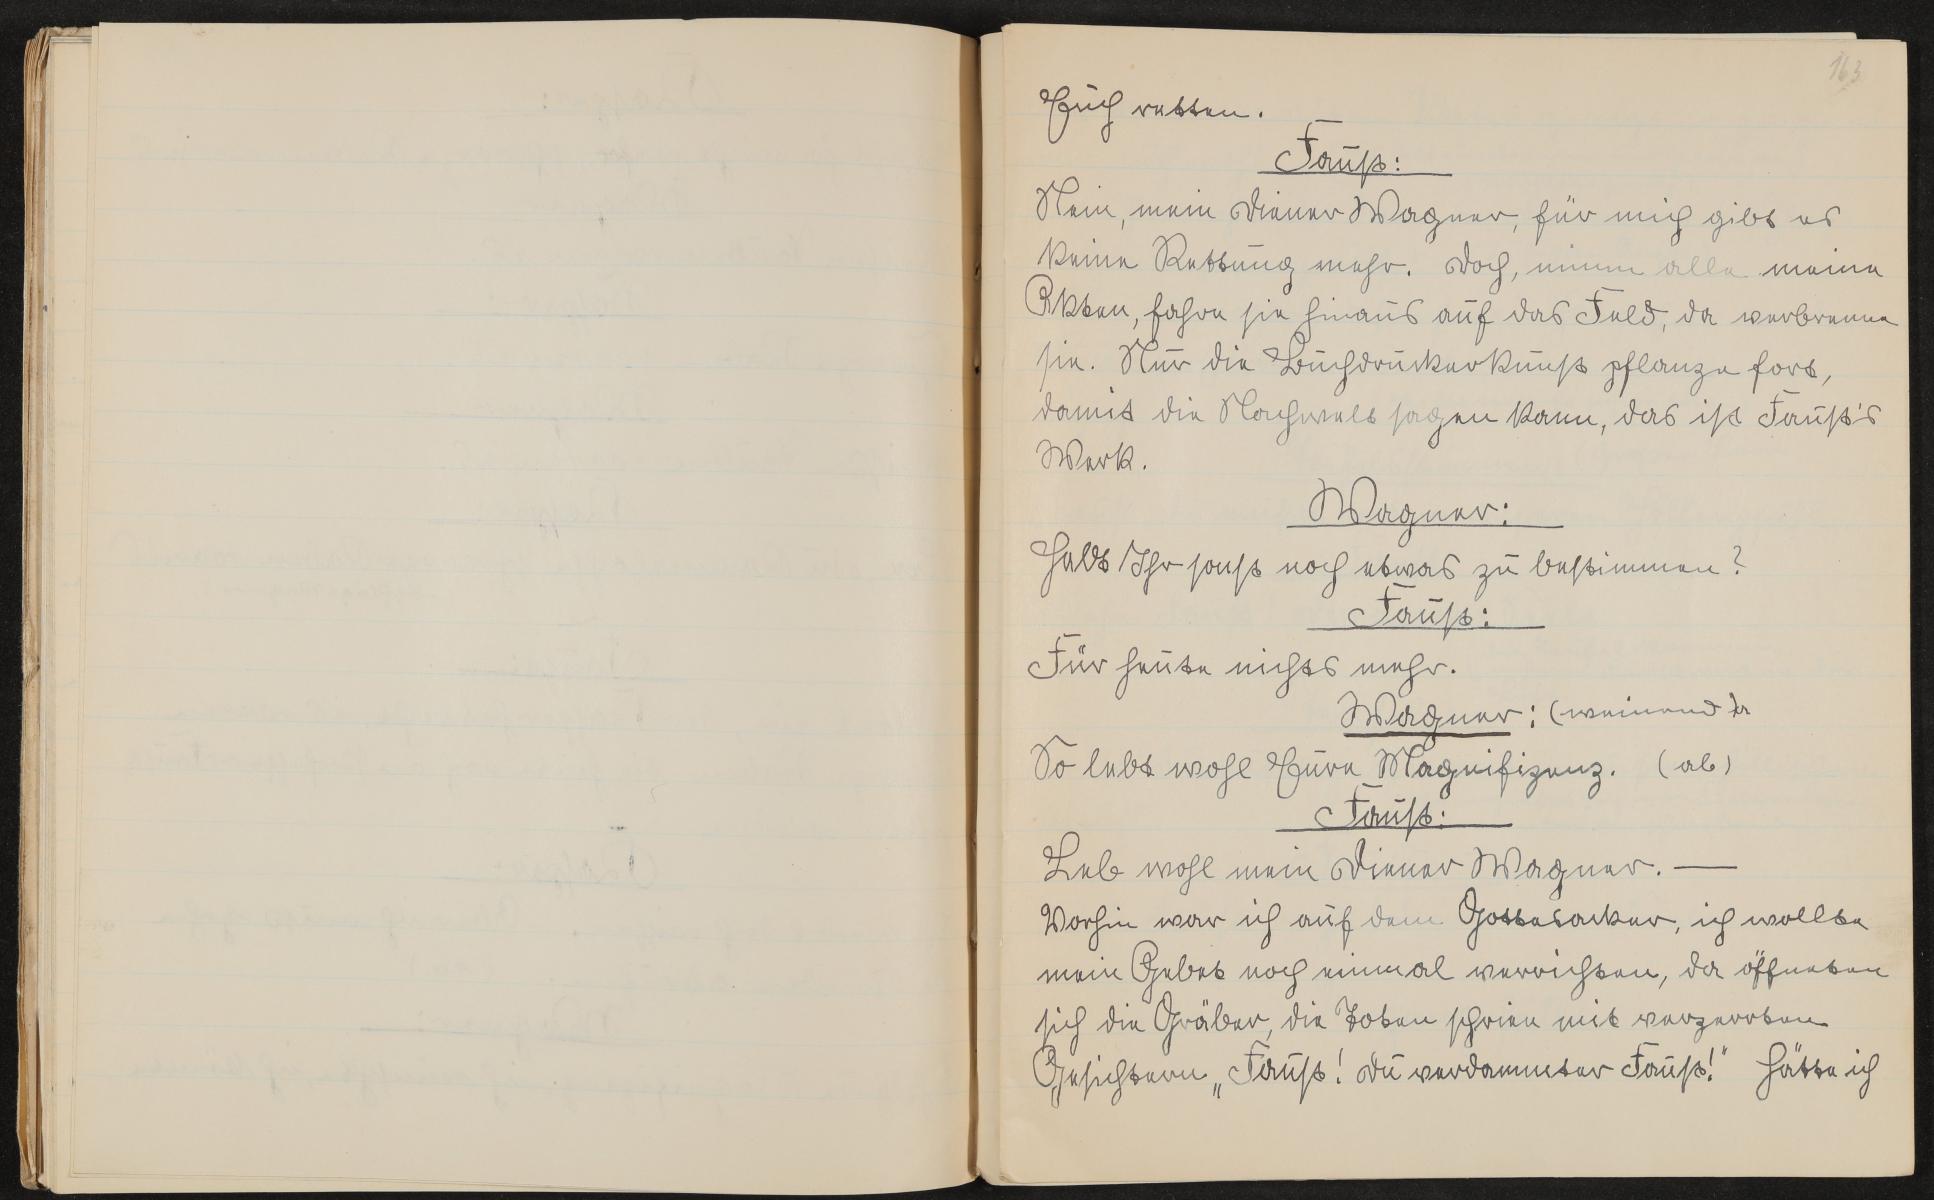 163
Euch retten.
Faust:
Nein, mein Diener Wagner, für mich gibt es
keine Rettung mehr. Doch, nimm alle meine
Akten, fahre sie hinaus auf das Feld, da verbrenne
sie. Nur die Buchdruckerkunst pflanze fort,
damit die Nachwelt sagen kann, das ist Faust's
Werk.
Wagner:
Habt Ihr sonst noch etwas zu bestimmen?
Faust:
Für heute nichts mehr.
Wagner: (weinend)
So lebt wohl Eure Magnifizenz. (ab)
Faust:
Leb wohl mein Diener Wagner. —
Vorhin war ich auf dem Gottesacker, ich wollte
mein Gebet noch einmal verrichten, da öffneten
sich die Gräber, die Toten schrien mit verzerrten
Gesichtern „Faust! Du verdammter Faust!" Hätte ich